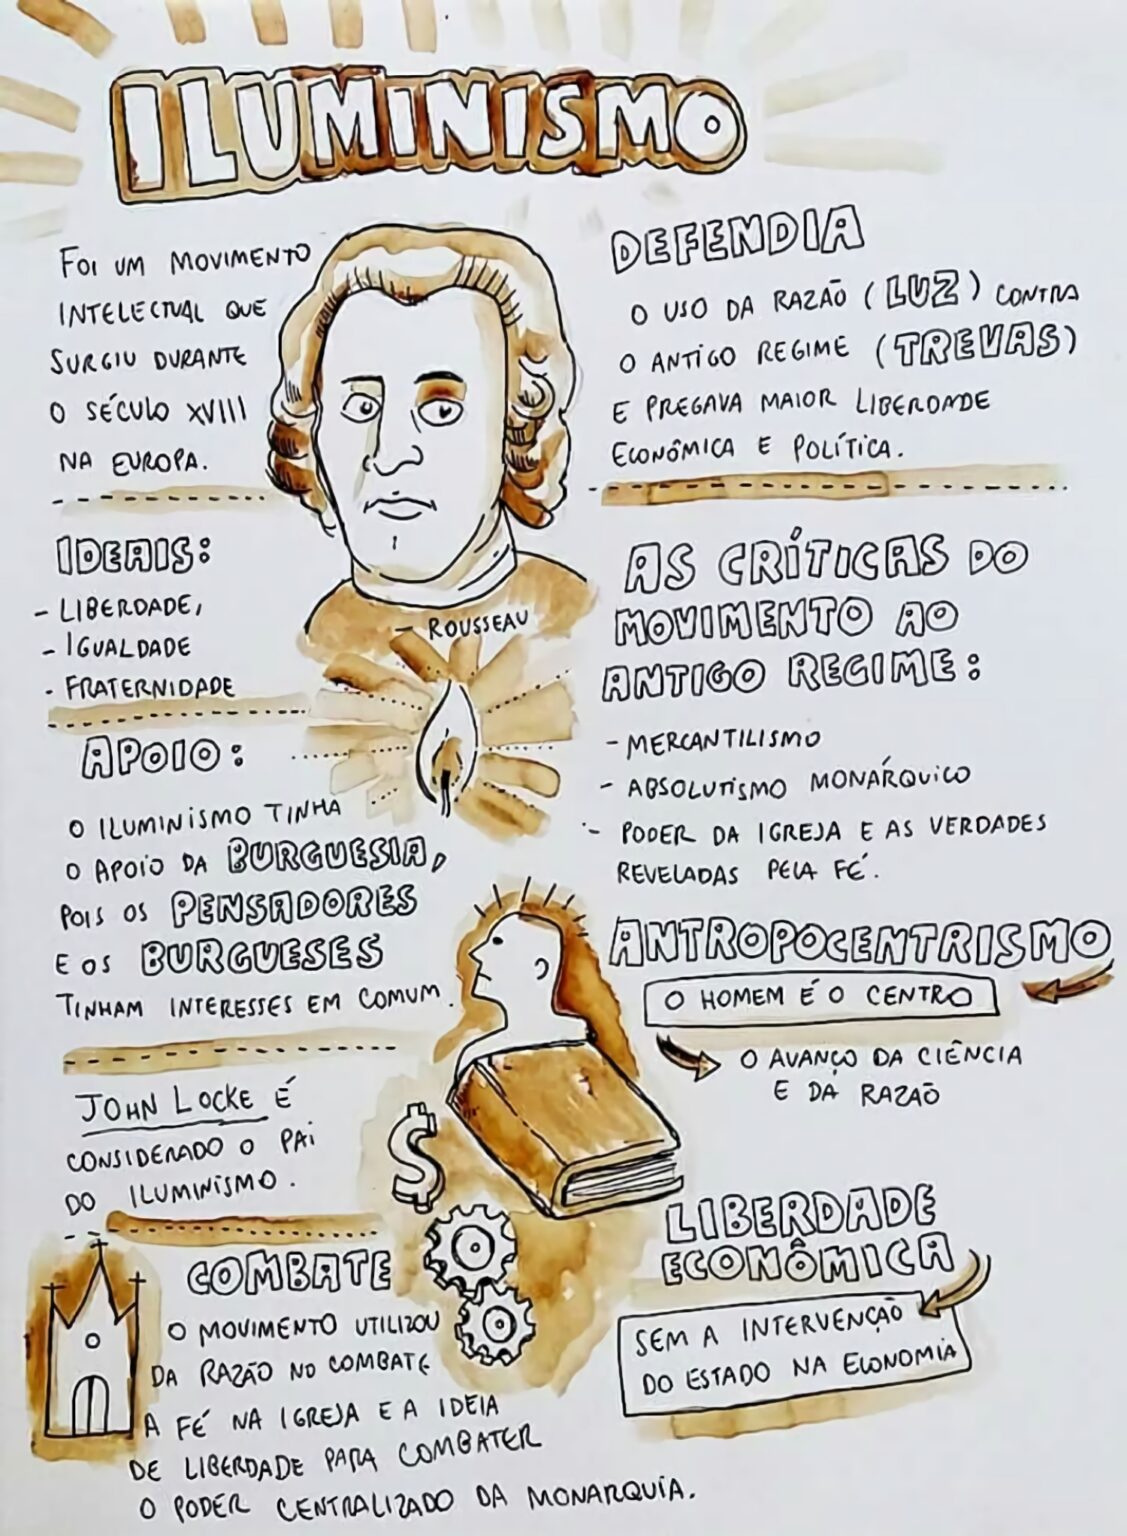 ILUMINISMO
FOI UM MOVIMENTO
INTELECTUAL QUE
SURGIU DURANTE
O SÉCULO XVIII
NA EUROPA.
IDEAIS:
- LIBERDADE,
- IGUALDADE
- FRATERNIDADE
- ROUSSEAU
APOIO:
O ILUMINISMO TINHA
O APOIO DA BURGUESIA,
POIS OS PENSADORES
E OS BURGUESES
TINHAM INTERESSES EM COMUM.
JOHN LOCKE É
CONSIDERADO O PAI
DO ILUMINISMO.
$
COMBATE
O MOVIMENTO UTILIZOU
DA RAZÃO NO COMBATE
A FÉ NA IGREJA E A IDEIA
DE LIBERDADE PARA COMBATER
O PODER CENTRALIZADO DA MONARQUIA.
DEFENDIA
O USO DA RAZÃO (LUZ) CONTRA
O ANTIGO REGIME (TREVAS)
E PREGAVA MAIOR LIBERDADE
ECONÔMICA E POLÍTICA.
AS CRÍTICAS DO
MOVIMENTO AO
ANTIGO REGIME:
- MERCANTILISMO
- ABSOLUTISMO MONÁRQUICO
- PODER DA IGREJA E AS VERDADES
REVELADAS PELA FÉ.
ANTROPOCENTRISMO
O HOMEM É O CENTRO
O AVANÇO DA CIÊNCIA
E DA RAZÃO
LIBERDADE
ECONÔMICA
SEM A INTERVENÇÃO
DO ESTADO NA ECONOMIA